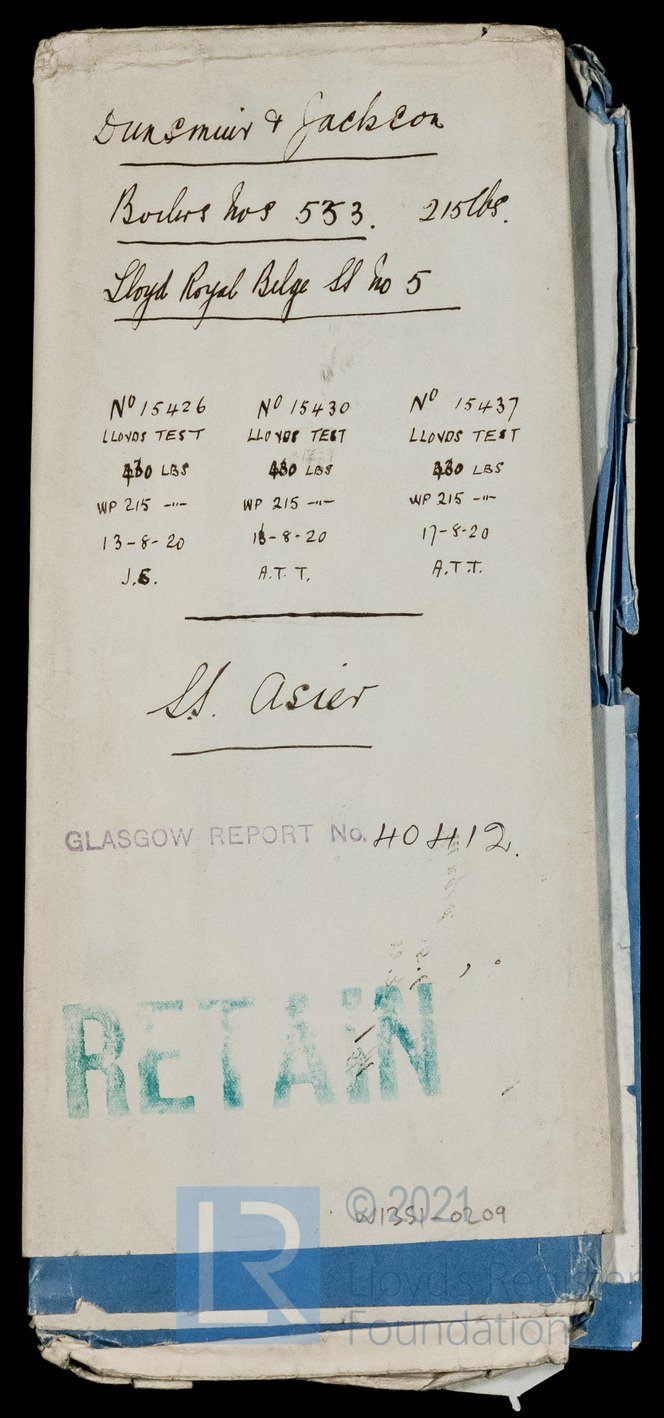 Dunsmuir & Jackson
Boilers Nos 533. 215lbs.
Lloyd Royal Belge SS No 5
No 15426 No 15430 No 15437
LLOYDS TEST LLOYDS TEST LLOYDS TEST
LBS LBS LBS
WP 215 -"- WP 215 -"- WP 215 -"-
13-8-20 -8-20 17-8-20
A.T.T. A.T.T.
SS. Asier
GLASGOW REPORT No. 40412.
RETAIN
LR
© 2021
W1351-0209
Lloyd's Register
Foundation